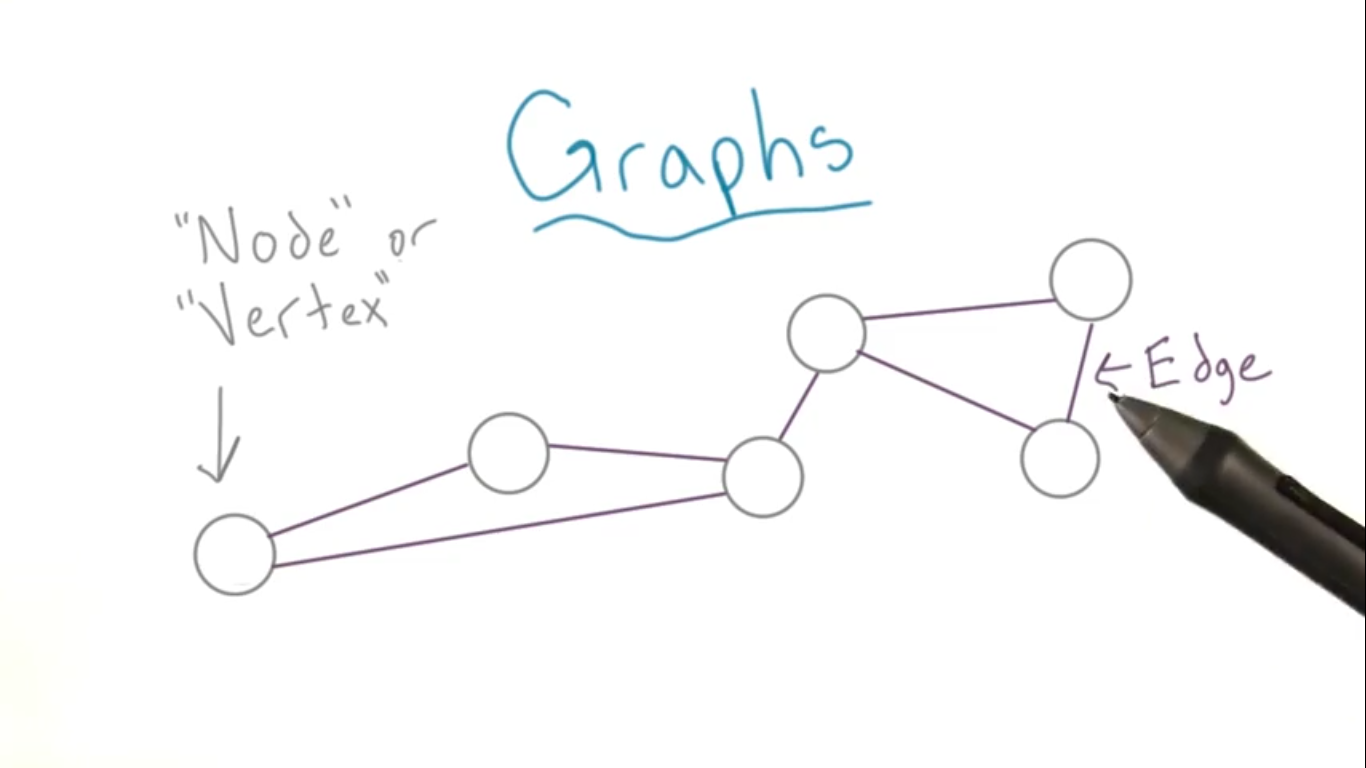 Graphs
"Node" or
"Vertex"
← Edge